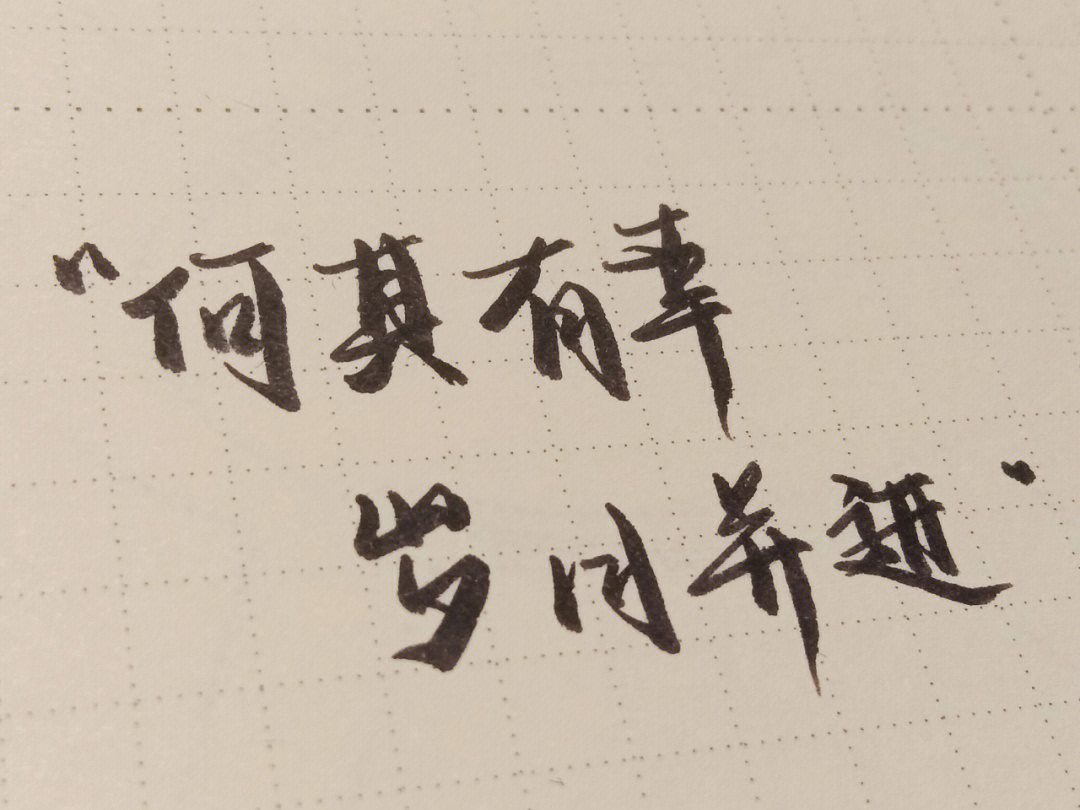 “何其有幸
岁月并进”